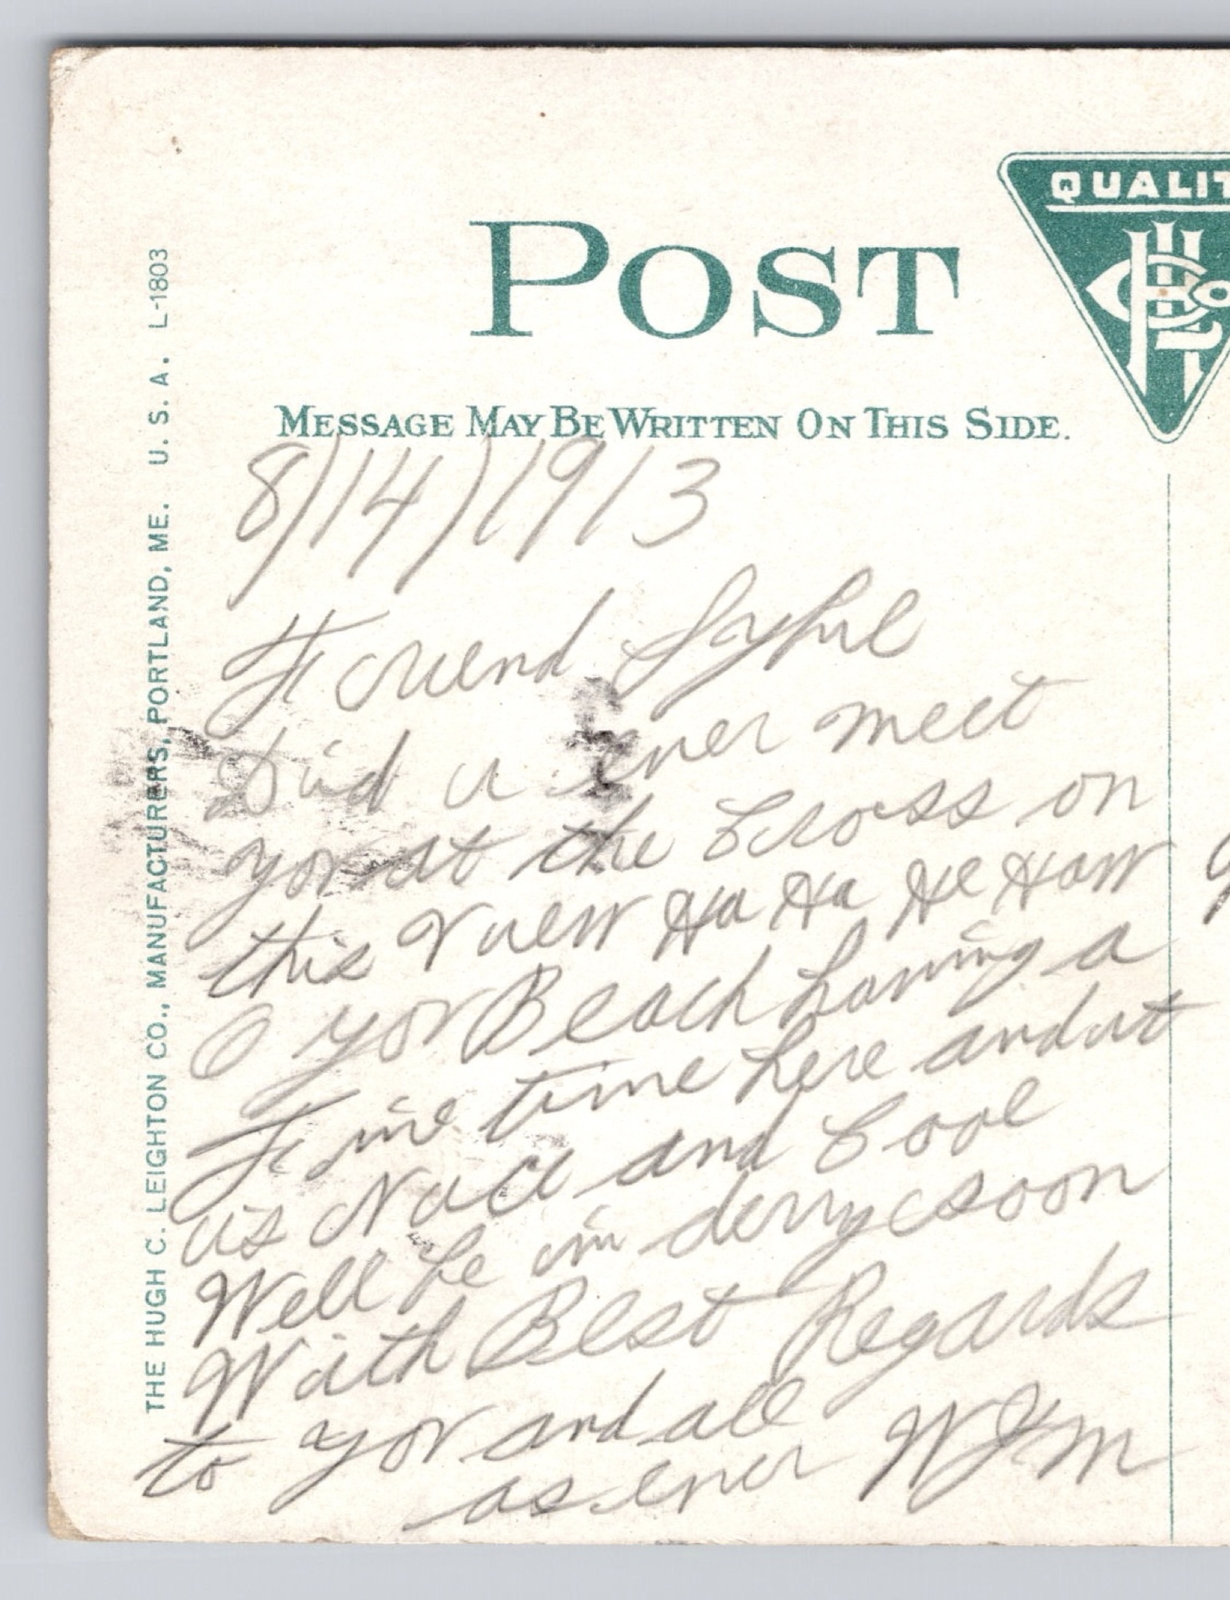 POST
QUALIT
HCL Co
MESSAGE MAY BE WRITTEN ON THIS SIDE.
THE HUGH C. LEIGHTON CO., MANUFACTURERS, PORTLAND, ME. U. S. A. L-1803
8/14/1913
Friend
Did u ever meet
yor at the Cross on
this View Ha Ha He Haw
O yor Beach having a
Fine time here and at
is Nice and Cool
Well be in derry soon
With Best Regards
to yor and all
as ever W